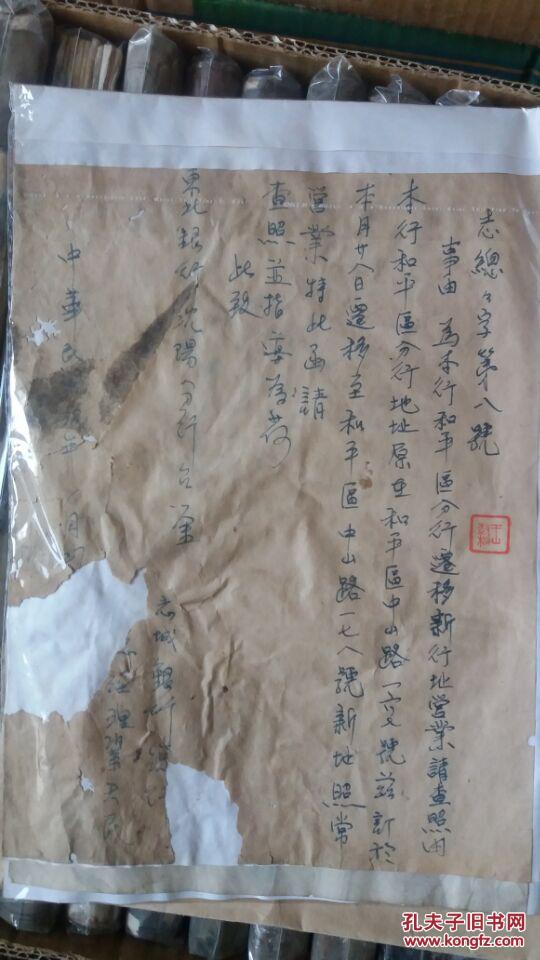 志總乂字第八號
事由 為本行和平區分行遷移新行址營業請查照由
本行和平區分行地址原在和平區中山路一 號茲訂於
本月廿八日遷移至和平區中山路一七八號新地照常
營業特此函請
查照並指 為荷
此致
東北銀行沈陽分行台鑒
志城銀行總
經理
中華民 年 月
孔夫子旧书网
www.kongfz.com